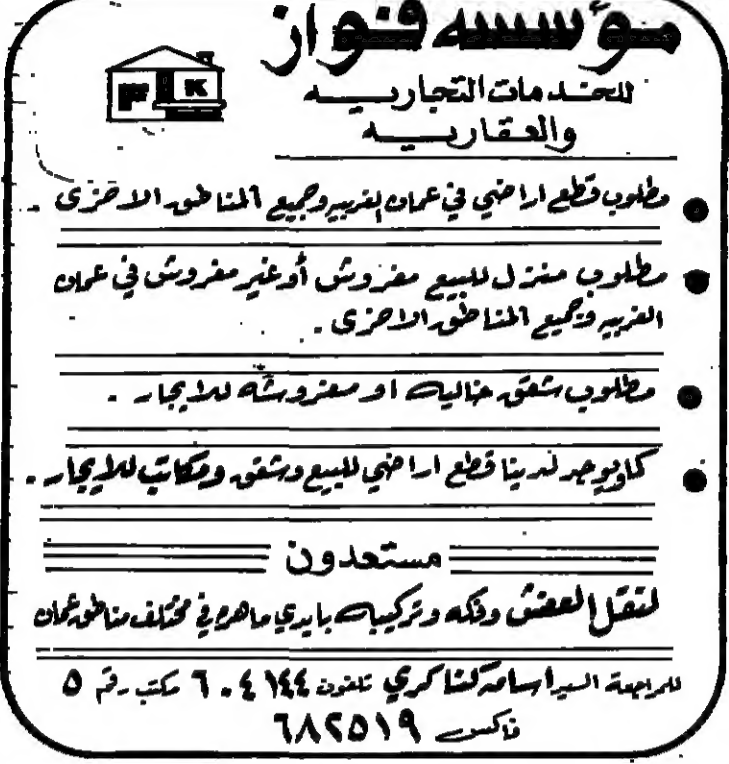 مؤسسه فواز
للخدمات التجاريه
والعقاريه
F K
مطلوب قطع اراضي في عمان الغربيه وجميع المناطق الاخرى .
مطلوب منزل للبيع مفروش أو غير مفروش في عمان
الغربيه وجميع المناطق الاخرى .
مطلوب شقق خاليه او مفروشه للايجار .
كما يوجد لدينا قطع اراضي للبيع وشقق ومكاتب للايجار .
مستعدون
لنقل العفش وفكه وتركيبه بايدي ماهره في مختلف مناطق عمان
للمراجعة السيد اسامه تلفون ٦٠٤١٤٤ مكتب رقم ٥
فاكس ٦٨٢٥١٩